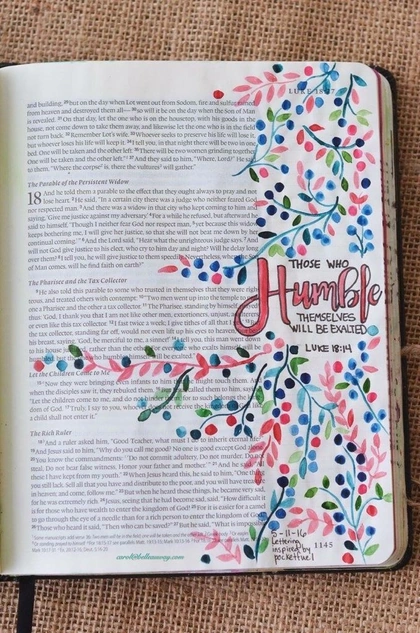 LUKE 18:17
and building, 29but on the day when Lot went out from Sodom, fire and sulfur rained
from heaven and destroyed them all— 30so will it be on the day when the Son of Man
is revealed. 31On that day, let the one who is on the housetop, with his goods in the
house, not come down to take them away, and likewise let the one who is in the field
not turn back. 32Remember Lot's wife. 33Whoever seeks to preserve his life will lose it,
but whoever loses his life will keep it. 34I tell you, in that night there will be two in one
bed. One will be taken and the other left. 35There will be two women grinding together.
One will be taken and the other left." 37And they said to him, "Where, Lord?" He said
to them, "Where the corpse is, there the vultures will gather."
The Parable of the Persistent Widow
18 And he told them a parable to the effect that they ought always to pray and not
lose heart. 2He said, "In a certain city there was a judge who neither feared God
nor respected man. 3And there was a widow in that city who kept coming to him and
saying, 'Give me justice against my adversary.' 4For a while he refused, but afterward he
said to himself, 'Though I neither fear God nor respect man, 5yet because this widow
keeps bothering me, I will give her justice, so that she will not beat me down by her
continual coming.'" 6And the Lord said, "Hear what the unrighteous judge says. 7And
will not God give justice to his elect, who cry to him day and night? Will he delay long
over them? 8I tell you, he will give justice to them speedily. Nevertheless, when the Son
of Man comes, will he find faith on earth?"
The Pharisee and the Tax Collector
9He also told this parable to some who trusted in themselves that they were righ-
teous, and treated others with contempt: 10"Two men went up into the temple to pray,
one a Pharisee and the other a tax collector. 11The Pharisee, standing by himself, prayed
thus: 'God, I thank you that I am not like other men, extortioners, unjust, adulterers,
or even like this tax collector. 12I fast twice a week; I give tithes of all that I get.' 13But the
tax collector, standing far off, would not even lift up his eyes to heaven, but beat
his breast, saying, 'God, be merciful to me, a sinner!' 14I tell you, this man went down
to his house justified, rather than the other. For everyone who exalts himself will
be humbled, but the one who humbles himself will be exalted."
Let the Children Come to Me
15Now they were bringing even infants to him that he might touch them. And
when the disciples saw it, they rebuked them. 16But Jesus called them to him, saying,
"Let the children come to me, and do not hinder them, for to such belongs the king-
dom of God. 17Truly, I say to you, whoever does not receive the kingdom of God like a
child shall not enter it."
The Rich Ruler
18And a ruler asked him, "Good Teacher, what must I do to inherit eternal life?"
19And Jesus said to him, "Why do you call me good? No one is good except God alone.
20You know the commandments: 'Do not commit adultery, Do not murder, Do not
steal, Do not bear false witness, Honor your father and mother.'" 21And he said, "All
these I have kept from my youth." 22When Jesus heard this, he said to him, "One thing
you still lack. Sell all that you have and distribute to the poor, and you will have treasure
in heaven; and come, follow me." 23But when he heard these things, he became very sad,
for he was extremely rich. 24Jesus, seeing that he had become sad, said, "How difficult it
is for those who have wealth to enter the kingdom of God! 25For it is easier for a camel
to go through the eye of a needle than for a rich person to enter the kingdom of God."
26Those who heard it said, "Then who can be saved?" 27But he said, "What is impossible
carol@bellsaway.com
1145
THOSE WHO
Humble
THEMSELVES
WILL BE EXALTED
LUKE 18:14
5-11-16
Lettering
inspired by
pocketfuel